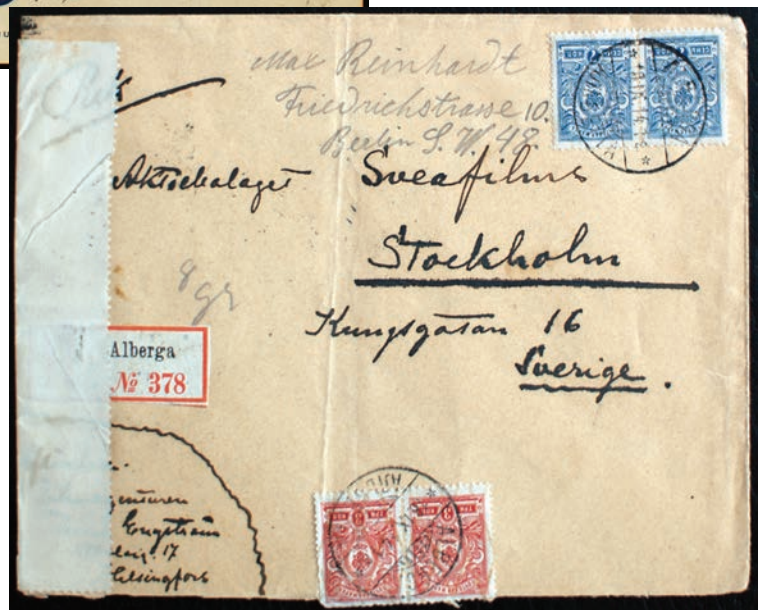 Max Reinhardt
Friedrichstrasse 10.
Berlin S. W. 48.
Aktiebolaget Sveafilms
Stockholm
Kungsgatan 16
Sverige.
8 gr
Alberga
№ 378
Engström
17
Helsingfors